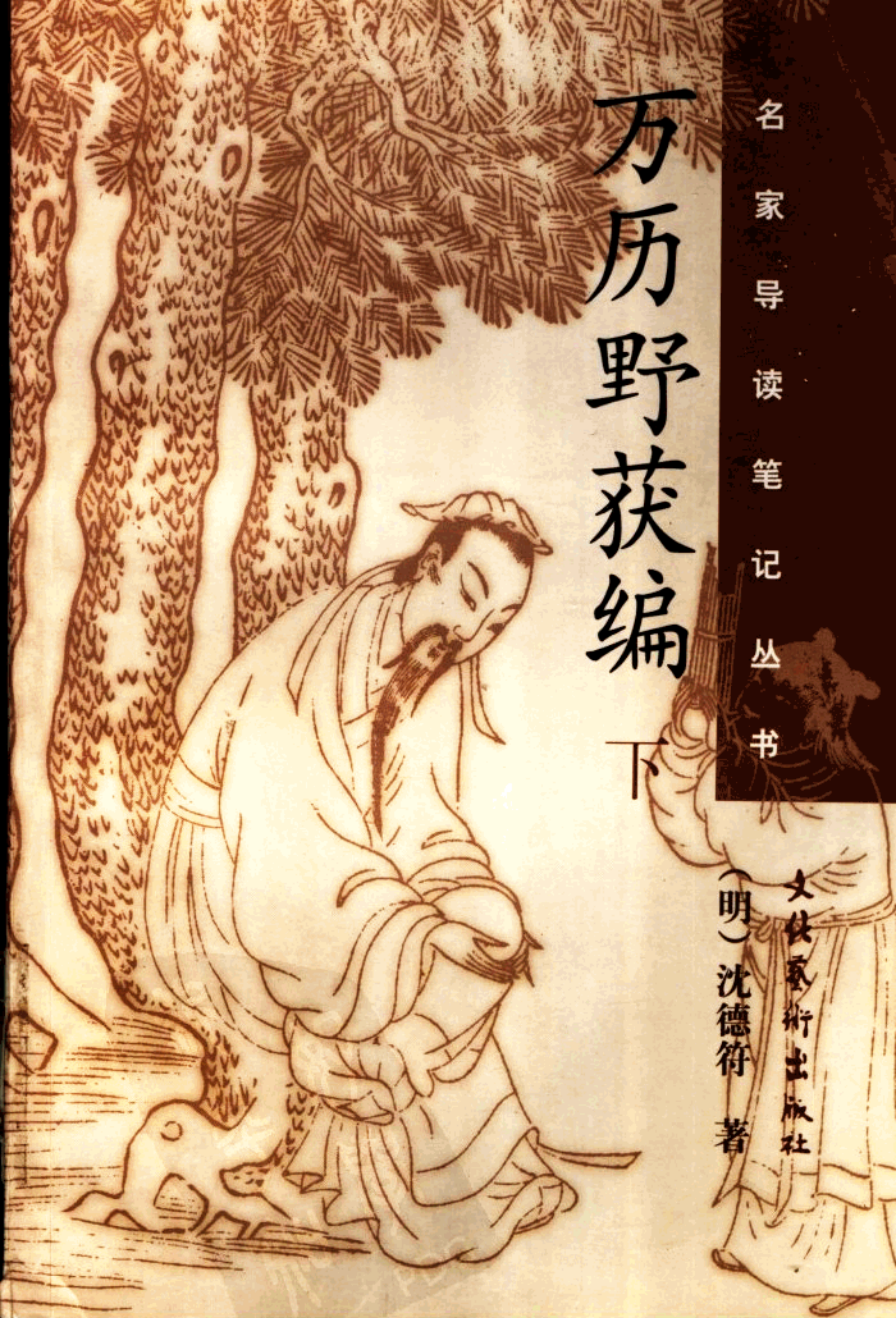 名家导读笔记丛书
万历野获编 下
(明)沈德符 著
文化艺术出版社